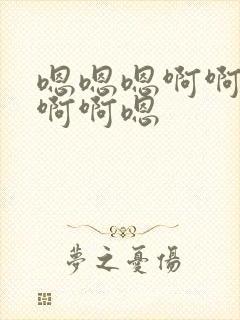 嗯嗯嗯啊啊
啊啊嗯
夢之憂傷